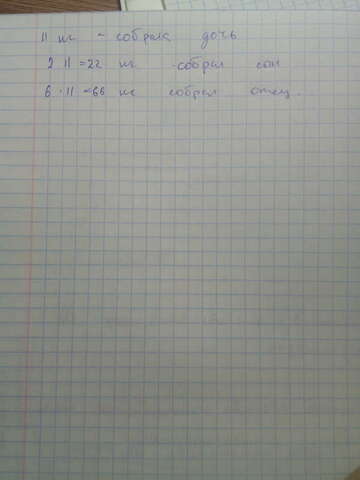 11 кг - собрала дочь
2 11 = 22 кг - собрал сын
6 · 11 = 66 кг собрал отец.